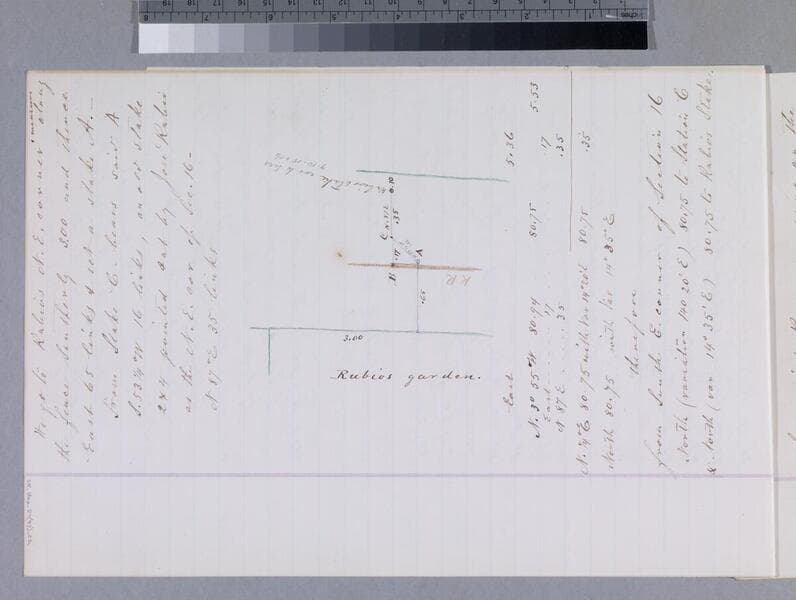 We go to Rubios N. E. corner & measure along
the fence Southerly 300 and thence
East 65 links & set a Stake A. —
From Stake C. bears said A
S. 53¼°W 16 links, and a stake
2x4 pointed out by José Rubio
as the N. E. cor of Sec. 16 —
N 87°E 35 links
Rubios Stake
0.10
C
.35
.17
B
A
R R
.65
3.00
Rubios garden.
East 5.36
N. 30' 55"W 80.94 80.75 5.53
East .17 .17
N 87 E .35 .35
N. ¼°E 80.75 with Var 14°20'E 80.75 .35
North 80.75 with Var 14° 35' E
therefore
from South E. corner of Section 16
North (variation 14° 20' E) 80.75 to Station C
& North (var 14° 35' E) 80.75 to Rubios Stake.